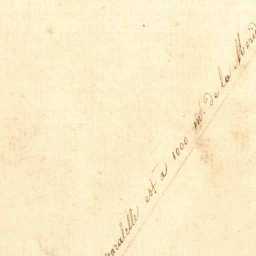 paralelle est à 1000 m. de la Mérid